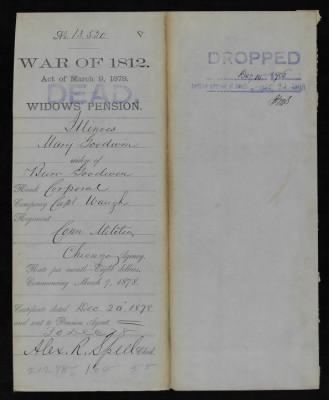 No 13.520
WAR OF 1812.
Act of March 9, 1878.
DEAD.
WIDOWS' PENSION.
Illinois
Mary Goodwin
widow of
Goodwin
Rank Corporal
Company Capt Waugh
Regiment
Conn Militia
Chicago Agency.
Rate per month Eight dollars.
Commencing March 9, 1878.
Certificate dated Dec 20 1878
and sent to Pension Agent
Alex. R. Speel Clerk.
DROPPED